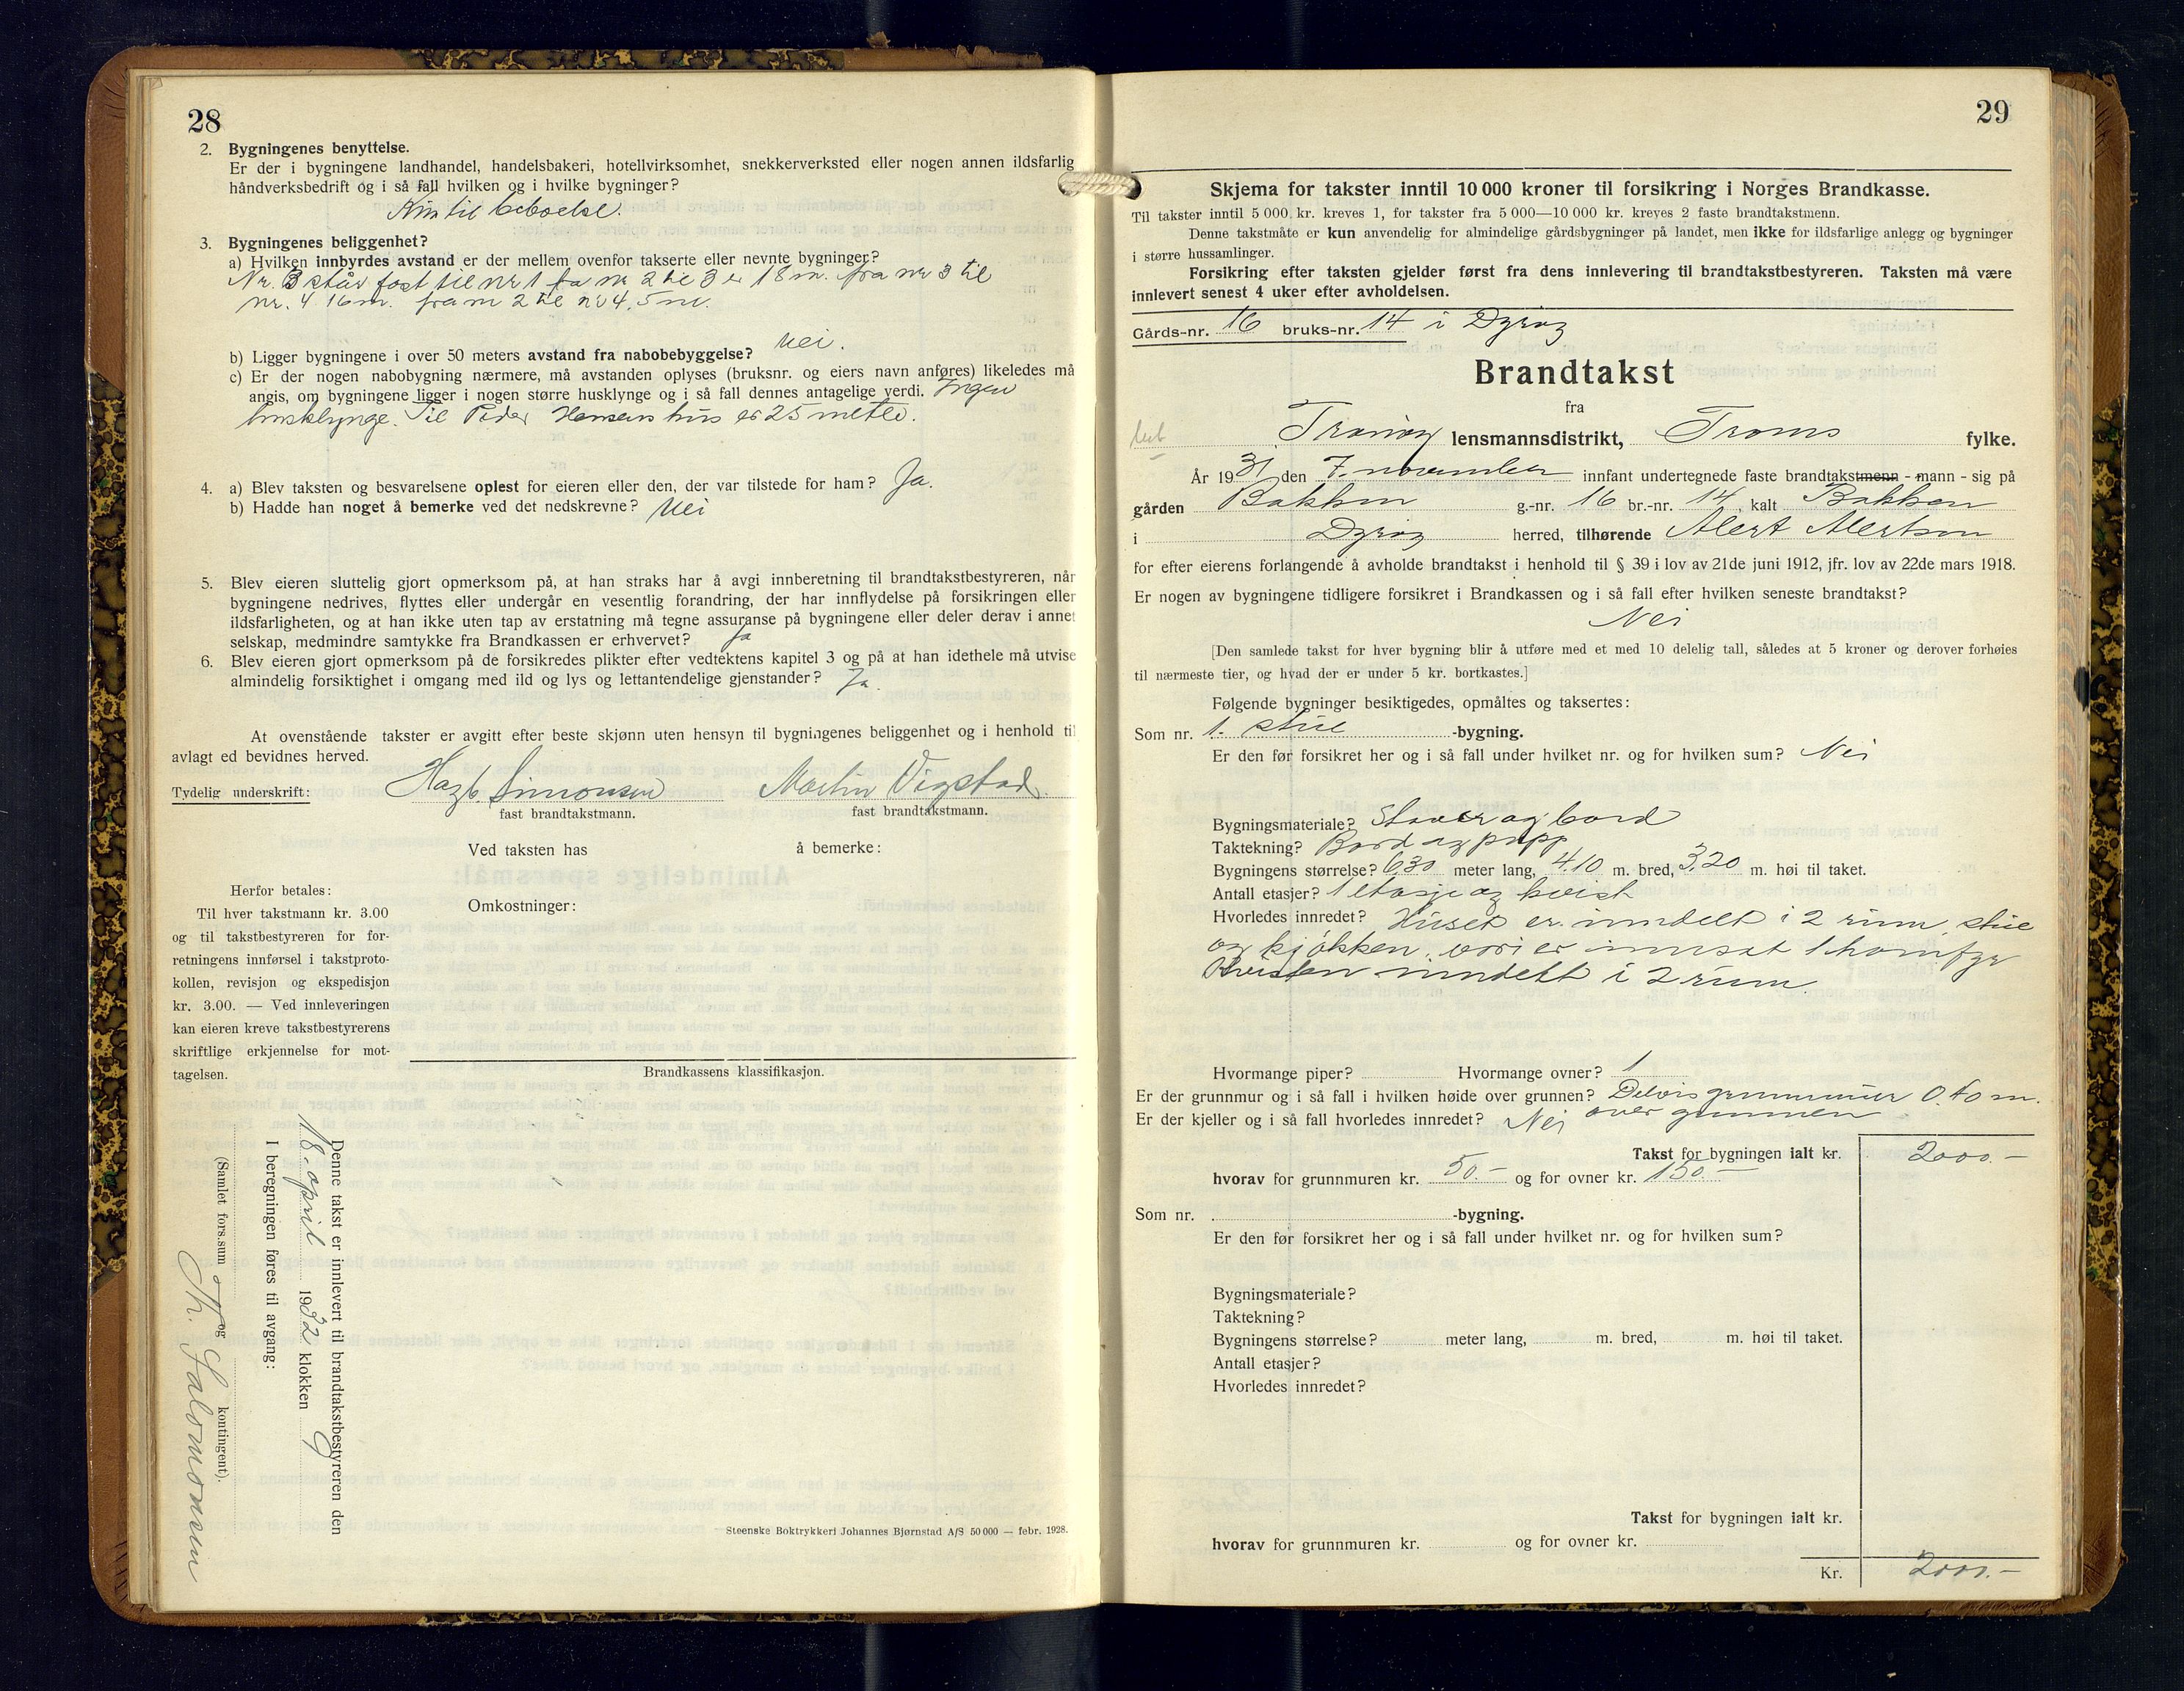 28
2. Bygningenes benyttelse.
Er der i bygningene landhandel, handelsbakeri, hotellvirksomhet, snekkerverksted eller nogen annen ildsfarlig
håndverksbedrift og i så fall hvilken og i hvilke bygninger?
Kun til beboelse.
3. Bygningenes beliggenhet?
a) Hvilken innbyrdes avstand er der mellem ovenfor takserte eller nevnte bygninger?
Nr. 3 står fast til nr 1 fra nr 2 til 3 er 18 m. fra nr 3 til
nr. 4 16 m. fra nr 2 til nr 4. 5 m.
b) Ligger bygningene i over 50 meters avstand fra nabobebyggelse? Nei.
c) Er der nogen nabobygning nærmere, må avstanden oplyses (bruksnr. og eiers navn anføres) likeledes må
angis, om bygningene ligger i nogen større husklynge og i så fall dennes antagelige verdi. Ingen
husklynge. Til Peder Hansens hus er 25 meter.
4. a) Blev taksten og besvarelsene oplest for eieren eller den, der var tilstede for ham? Ja.
b) Hadde han noget å bemerke ved det nedskrevne? Nei
5. Blev eieren sluttelig gjort opmerksom på, at han straks har å avgi innberetning til brandtakstbestyreren, når
bygningene nedrives, flyttes eller undergår en vesentlig forandring, der har innflydelse på forsikringen eller
ildsfarligheten, og at han ikke uten tap av erstatning må tegne assuranse på bygningene eller deler derav i annet
selskap, medmindre samtykke fra Brandkassen er erhvervet? Ja
6. Blev eieren gjort opmerksom på de forsikredes plikter efter vedtektens kapitel 3 og på at han idethele må utvise
almindelig forsiktighet i omgang med ild og lys og lettantendelige gjenstander? Ja.
At ovenstående takster er avgitt efter beste skjønn uten hensyn til bygningenes beliggenhet og i henhold til
avlagt ed bevidnes herved.
Tydelig underskrift: Hagb Simonsen Martin Vigstad
fast brandtakstmann. fast brandtakstmann.
Ved taksten has å bemerke:
Herfor betales:
Til hver takstmann kr. 3.00
og til takstbestyreren for for-
retningens innførsel i takstproto-
kollen, revisjon og ekspedisjon
kr. 3.00. — Ved innleveringen
kan eieren kreve takstbestyrerens
skriftlige erkjennelse for mot-
tagelsen.
Omkostninger:
Brandkassens klassifikasjon.
Denne takst er innlevert til brandtakstbestyreren den
18. april 1932 klokken 9
I beregningen føres til avgang:
(Samlet fors.sum og kontingent).
Th. Salomonsen
Steenske Boktrykkeri Johannes Bjørnstad A/S 50 000 — febr. 1928.
29
Skjema for takster inntil 10 000 kroner til forsikring i Norges Brandkasse.
Til takster inntil 5 000 kr. kreves 1, for takster fra 5 000—10 000 kr. kreves 2 faste brandtakstmenn.
Denne takstmåte er kun anvendelig for almindelige gårdsbygninger på landet, men ikke for ildsfarlige anlegg og bygninger
i større hussamlinger.
Forsikring efter taksten gjelder først fra dens innlevering til brandtakstbestyreren. Taksten må være
innlevert senest 4 uker efter avholdelsen.
Gårds-nr. 16 bruks-nr. 14 i Dyrøy
Brandtakst
fra
Tranøy lensmannsdistrikt, Troms fylke.
År 1931 den 7. november innfant undertegnede faste brandtakstmenn - mann - sig på
gården Bakken g.-nr. 16 br.-nr. 14, kalt Bakken
i Dyrøy herred, tilhørende Alert Alertsen
for efter eierens forlangende å avholde brandtakst i henhold til § 39 i lov av 21de juni 1912, jfr. lov av 22de mars 1918.
Er nogen av bygningene tidligere forsikret i Brandkassen og i så fall efter hvilken seneste brandtakst?
Nei
[Den samlede takst for hver bygning blir å utføre med et med 10 delelig tall, således at 5 kroner og derover forhøies
til nærmeste tier, og hvad der er under 5 kr. bortkastes.]
Følgende bygninger besiktigedes, opmåltes og taksertes:
Som nr. 1. stue -bygning.
Er den før forsikret her og i så fall under hvilket nr. og for hvilken sum? Nei
Bygningsmateriale? Staver og bord
Taktekning? Bord og papp
Bygningens størrelse? 6,30 meter lang, 4.10 m. bred, 3,20 m. høi til taket.
Antall etasjer? 1 etasje og kvist
Hvorledes innredet? Huset er inndelt i 2 rum, stue
og kjøkken, vori er innsat 1 komfyr
Kvisten inndelt i 2 rum.
Hvormange piper? Hvormange ovner? 1
Er der grunnmur og i så fall i hvilken høide over grunnen? Delvis grunnmur 0.40 m.
over grunnen
Er der kjeller og i så fall hvorledes innredet? Nei
Takst for bygningen ialt kr. 2000.-
hvorav for grunnmuren kr. 50.- og for ovner kr. 150.-
Som nr. -bygning.
Er den før forsikret her og i så fall under hvilket nr. og for hvilken sum?
Bygningsmateriale?
Taktekning?
Bygningens størrelse? meter lang, m. bred, m. høi til taket.
Antall etasjer?
Hvorledes innredet?
Takst for bygningen ialt kr.
hvorav for grunnmuren kr. og for ovner kr.
Kr. 2000.-